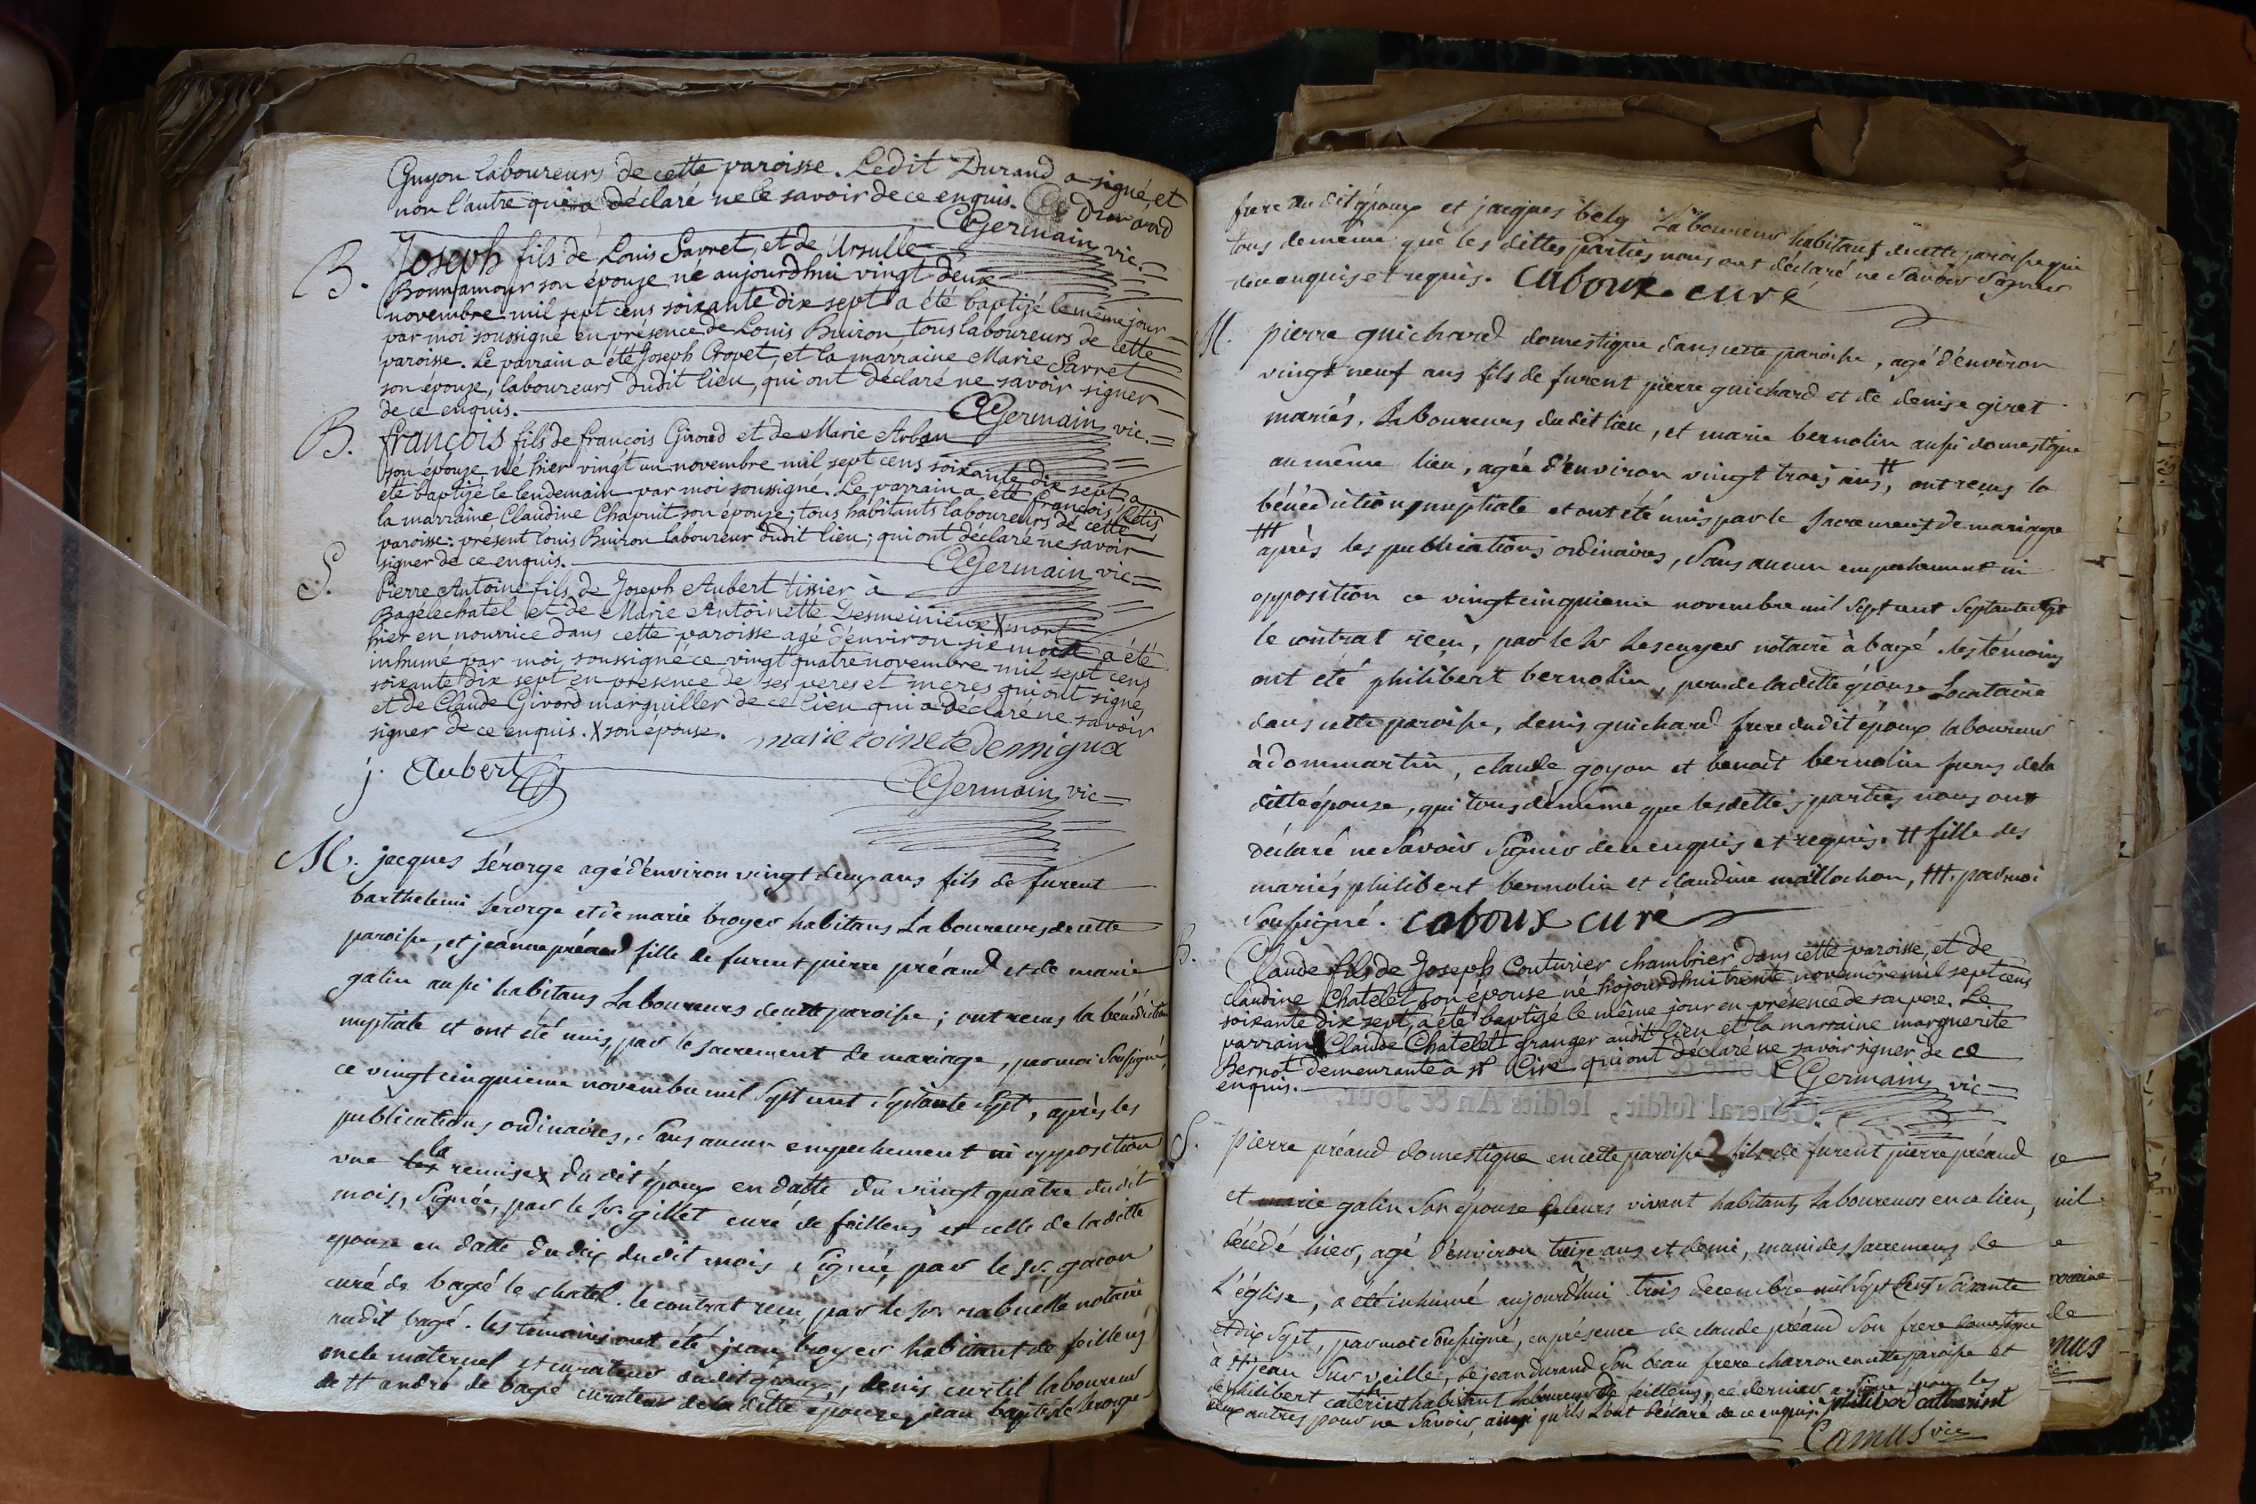 Guyon laboureurs de cette paroisse. Ledit Durand a signé, et
non l'autre qui a déclaré ne le savoir de ce enquis. C Durand
CGermain vic.
B. Joseph fils de Louis Sarret, et de Ursulle
Bonnamour son épouze né aujourdhui vingt deux
novembre mil sept cens soixante dix sept a été baptizé le même jour
par moi soussigné en présence de Louis Buiron, tous laboureurs de cette
paroisse. Le parrain a été Joseph Crovet, et la marraine Marie Sarret
son épouze, laboureurs dudit lieu, qui ont déclaré ne savoir signer
de ce enquis.
CGermain vic.
B. françois fils de françois Giroud et de Marie Arban
son épouze né hier vingt un novembre mil sept cens soixante dix sept a
été baptizé le lendemain par moi soussigné. Le parrain a été françois Rétis
la marraine Claudine Chapuit son épouze; tous habitants laboureurs de cette
paroisse: présent Louis Buiron laboureur dudit lieu; qui ont déclaré ne savoir
signer de ce enquis.
CGermain vic
S. Pierre Antoine fils de Joseph Aubert tissier à
Bagélechatel et de Marie Antoinette X mort
hier en nourrice dans cette paroisse agé d'environ six mois a été
inhumé par moi soussigné ce vingt quatre novembre mil sept cens
soixante dix sept en présence de ses peres et meres qui ont signé
et de Claude Givord marguiller de ce lieu qui a déclaré ne savoir
signer de ce enquis. X son épouse. marie toinete demigux
j. Aubert
CGermain vic
M. jacques Sérorge agé d'environ vingt deux ans fils de furent
barthelemi Serorge et de marie broyer habitans Laboureurs de cette
paroisse, et jeanne préaud fille de furent pierre préaud et de marie
galin aussi habitans Laboureurs de cette paroisse; ont recus la bénédiction
nuptiale et ont été unis, par le sacrement de mariage, par moi soussigné,
ce vingt cinquieme novembre mil Sept cent Septante Sept, après les
publications ordinaires, Sans aucun empechement ni opposition
vue la remise du dit époux en datte du vingt quatre du dit
mois, Signée, par le Sr. gillet curé de feillens et celle de laditte
epouse en datte du dix du dit mois Signé, par le Sr. gacon
curé de bagé le chatel. le contrat recu par le Sr. rabuelle notaire
audit bagé. les temoins ont été jean broyer habitant de feillens
oncle maternel et curateur dudit epoux, denis curtil laboureur
de St andré de bagé curateur de la ditte epouze, jean baptiste Serorge
frere du dit époux et jacques bely Laboureur habitant de cette paroisse qui
tous de même que les dittes parties nous ont déclaré ne Savoir Signer
de ce enquis et requis. caboux curé
M. pierre guichard domestique dans cette paroisse, agé d'environ
vingt neuf ans fils de furent pierre guichard et de denise giret
mariés, Laboureurs du dit lieu, et marie bernolin aussi domestique
au même lieu, agée d'environ vingt trois ans, tt ont recus la
bénédiction nuptiale et ont été unis par le Sacrement de mariage
ttt après les publications ordinaires, Sans aucun empechement ni
opposition ce vingt cinquieme novembre mil Sept cent Septante Sept
le contrat recu, par le Sr Lescuyer notaire à bagé. les témoins
ont été philibert bernolin, pere de laditte épouse Locataire
dans cette paroisse, denis guichard frere du dit époux laboureur
à dommartin, claude goyon et benoit bernolin freres de la
ditte épouse, qui tous de même que les dittes parties nous ont
déclaré ne Savoir Signer de ce enquis et requis. tt fille des
mariés philibert bernolin et claudine maillochon, ttt. par moi
Soussigné. caboux curé
B. Claude fils de Joseph Couturier chambrier dans cette paroisse, et de
claudine Chatelet son épouse né hojourdhui trente novembre mil sept cens
soixante dix sept, a été baptizé le même jour en présence de son pere. Le
parrain Claude Chatelet granger audit lieu et la marraine marguerite
Bernot demeurante à St Cire qui ont déclaré ne savoir signer de ce
enquis.
CGermain vic
Général susdit, lesdits An & Jour.
S. pierre préaud domestique en cette paroisse fils de furent pierre préaud
et marie galin son épouse de leurs vivant habitants Laboureurs en ce lieu,
décédé hier, agé d'environ treize ans et demi, muni des sacremens de
L'église, a été inhumé aujourd'hui trois decembre mil Sept Cent Soixante
et dix Sept, par moi Soussigné, en présence de claude préaud Son frere domestique
à St jean Sur veille, de jean durand Son beau frere charron en cette paroisse et
de philibert caterin habitant laboureur de feillens, ce dernier a Signé non les
deux autres pour ne Savoir, ainsi qu'ils L'ont déclaré de ce enquis. philiber catherint
Camus vic